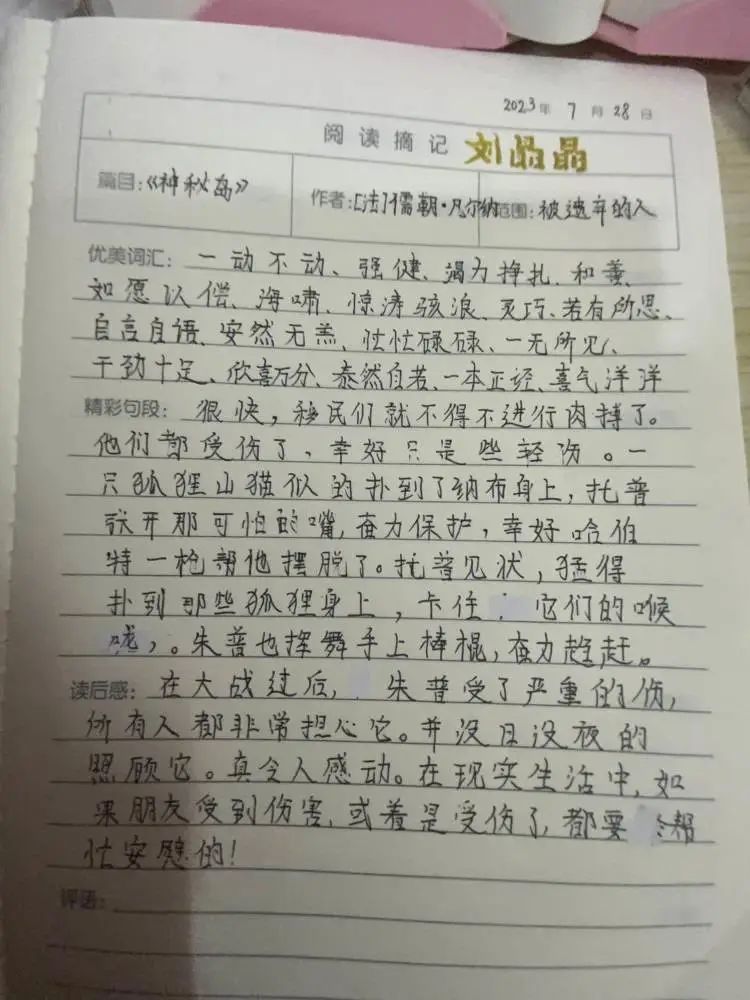 2023年 7月 28日
阅读摘记 刘晶晶
篇目:《神秘岛》 作者:[法]儒朝·凡尔纳 范围:被遗弃的人
优美词汇:一动不动、强健、竭力挣扎、和蔼、
如愿以偿、海啸、惊涛骇浪、灵巧、若有所思、
自言自语、安然无恙、忙忙碌碌、一无所见、
干劲十足、欣喜万分、泰然自若、一本正经、喜气洋洋
精彩句段:很快,移民们就不得不进行肉搏了。
他们都受伤了,幸好只是些轻伤。一
只狐狸山猫似的扑到了纳布身上,托普
张开那可怕的嘴,奋力保护,幸好哈伯
特一枪帮他摆脱了。托普见状,猛得
扑到那些狐狸身上,卡住它们的喉
咙,。朱普也挥舞手上棒棍,奋力趋赶。
读后感:在大战过后,朱普受了严重的伤,
所有人都非常担心它。并没日没夜的
照顾它。真令人感动。在现实生活中,如
果朋友受到伤害,或着是受伤了,都要帮
忙安慰的!
评语: